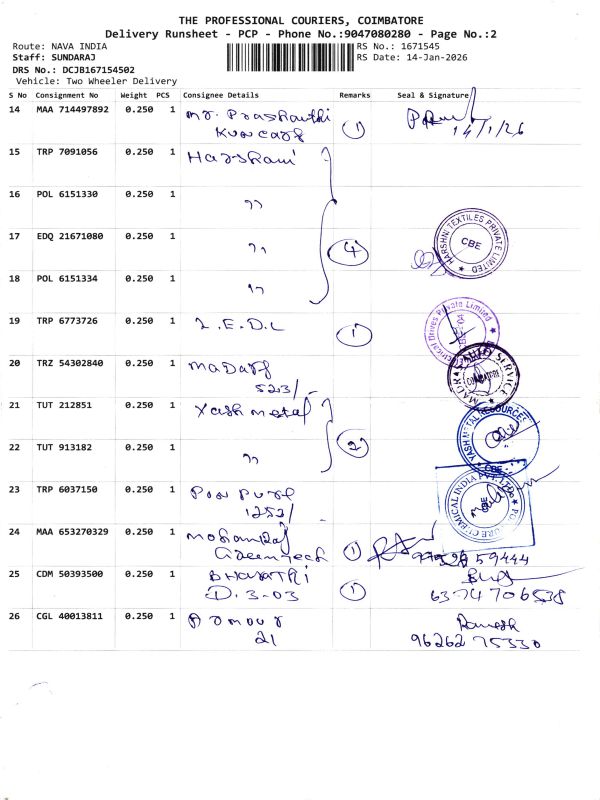 THE PROFESSIONAL COURIERS, COIMBATORE
Delivery Runsheet - PCP - Phone No.:9047080280 - Page No.:2
Route: NAVA INDIA
RS No.: 1671545
Staff: SUNDARAJ
RS Date: 14-Jan-2026
DRS No.: DCJB167154502
Vehicle: Two Wheeler Delivery
S No Consignment No Weight PCS Consignee Details Remarks Seal & Signature
14 MAA 714497892 0.250 1 Mr. Prashanthi 1
14/1/26
15 TRP 7091056 0.250 1 Harshani
16 POL 6151330 0.250 1 ,,
17 EDQ 21671080 0.250 1 ,, 4
HARSHNI TEXTILES PRIVATE LIMITED
CBE
18 POL 6151334 0.250 1 ,,
19 TRP 6773726 0.250 1 L.E.D.L 1
Drives Private Limited
20 TRZ 54302840 0.250 1
523/-
SERVICE
21 TUT 212851 0.250 1 Yash metal 2
YASH METAL RESOURCES
CBE
22 TUT 913182 0.250 1 ,,
23 TRP 6037150 0.250 1
1252/
CHEMICAL INDIA PVT. LTD.
CBE
24 MAA 653270329 0.250 1
Greentech 1
59444
25 CDM 50393500 0.250 1 BHARATHI
D.3-03 1 6374706538
26 CGL 40013811 0.250 1
21 Ramesh
96262 75330